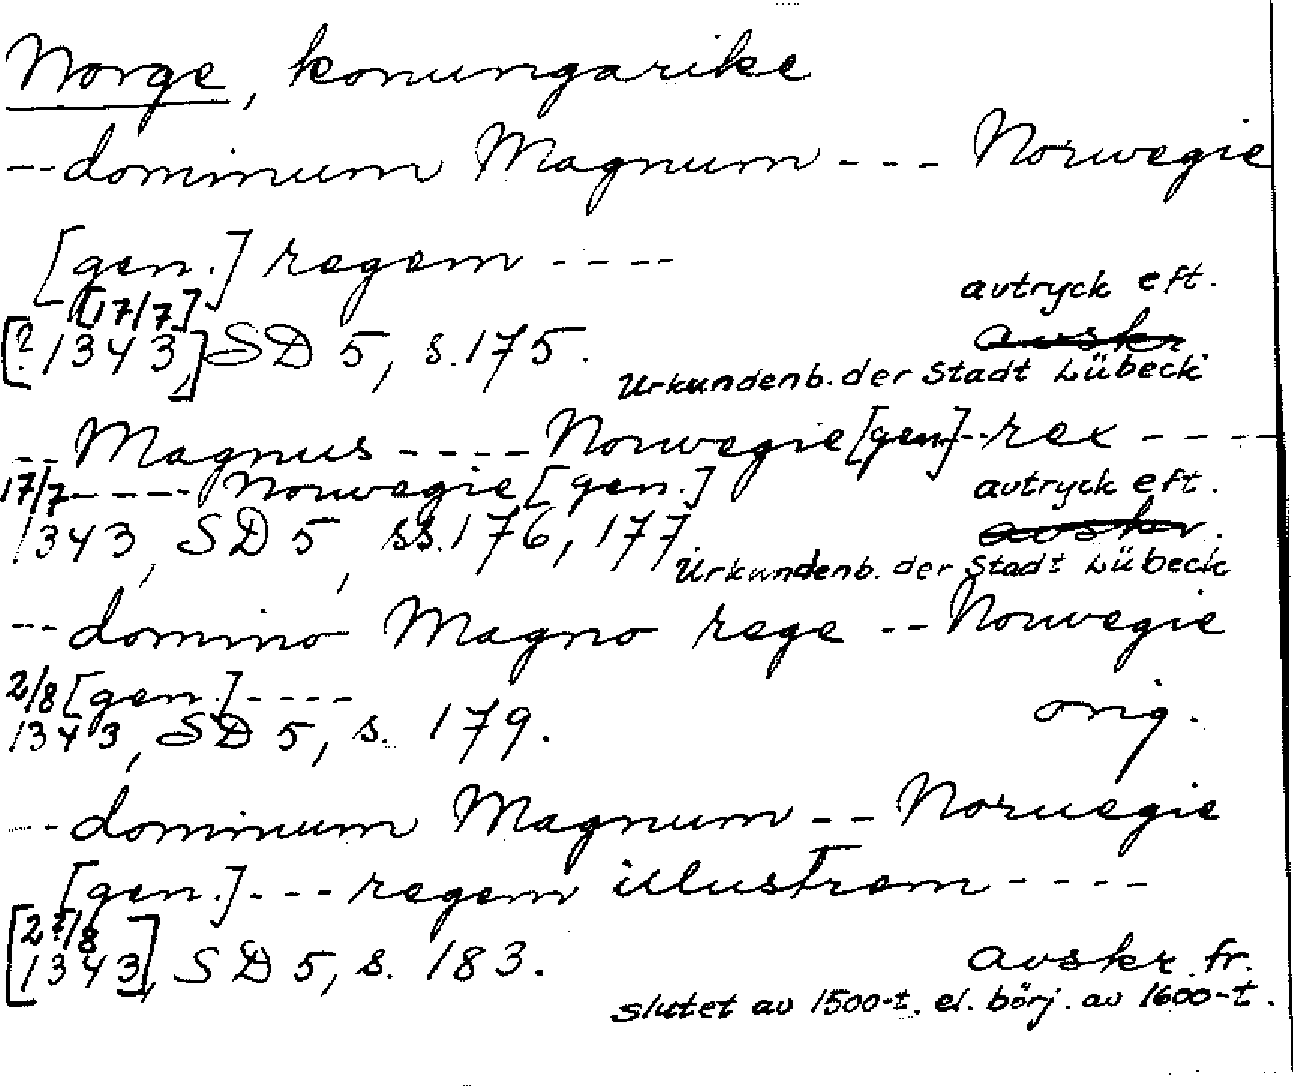 Norge, konungarike
-- dominum Magnum --- Norwegie
[gen.] regem ----
[17/7] avtryck eft.
[? 1343], SD 5, s. 175. avskr
Urkundenb. der Stadt Lübeck
-- Magnus ---- Norwegie [gen.] -- rex ----
17/7 ----- Norwegie [gen.] avtryck eft.
1343, SD 5, ss. 176, 177. avskr.
Urkundenb. der Stadt Lübeck
-- domino Magno rege -- Norwegie
2/8 [gen.] ---- orig.
1343, SD 5, s. 179.
--- dominum Magnum -- Noruegie
[gen.] --- regem illustrem ----
[2?/8
1343], SD 5, s. 183. avskr. fr.
slutet av 1500-t. el. börj. av 1600-t.